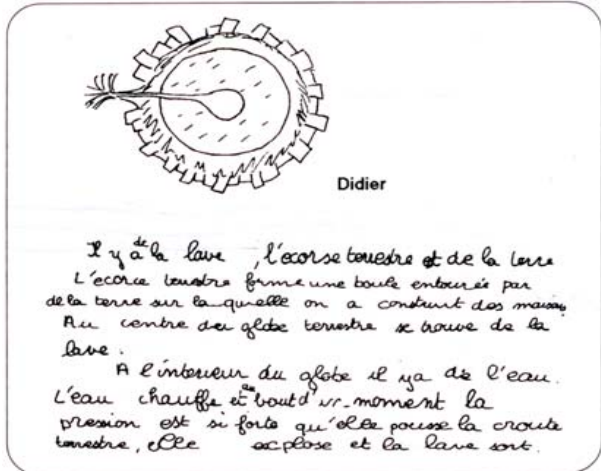 Didier
Il y a de la lave, l'ecorse terrestre et de la terre
L'ecorce terrestre forme une boule entourée par
de la terre sur la quelle on a construit des maisons
Au centre du globe terrestre se trouve de la
lave.
A l'interieur du globe il y a de l'eau.
L'eau chauffe et au bout d'un moment la
pression est si forte qu'elle pousse la croute
terrestre, elle explose et la lave sort.